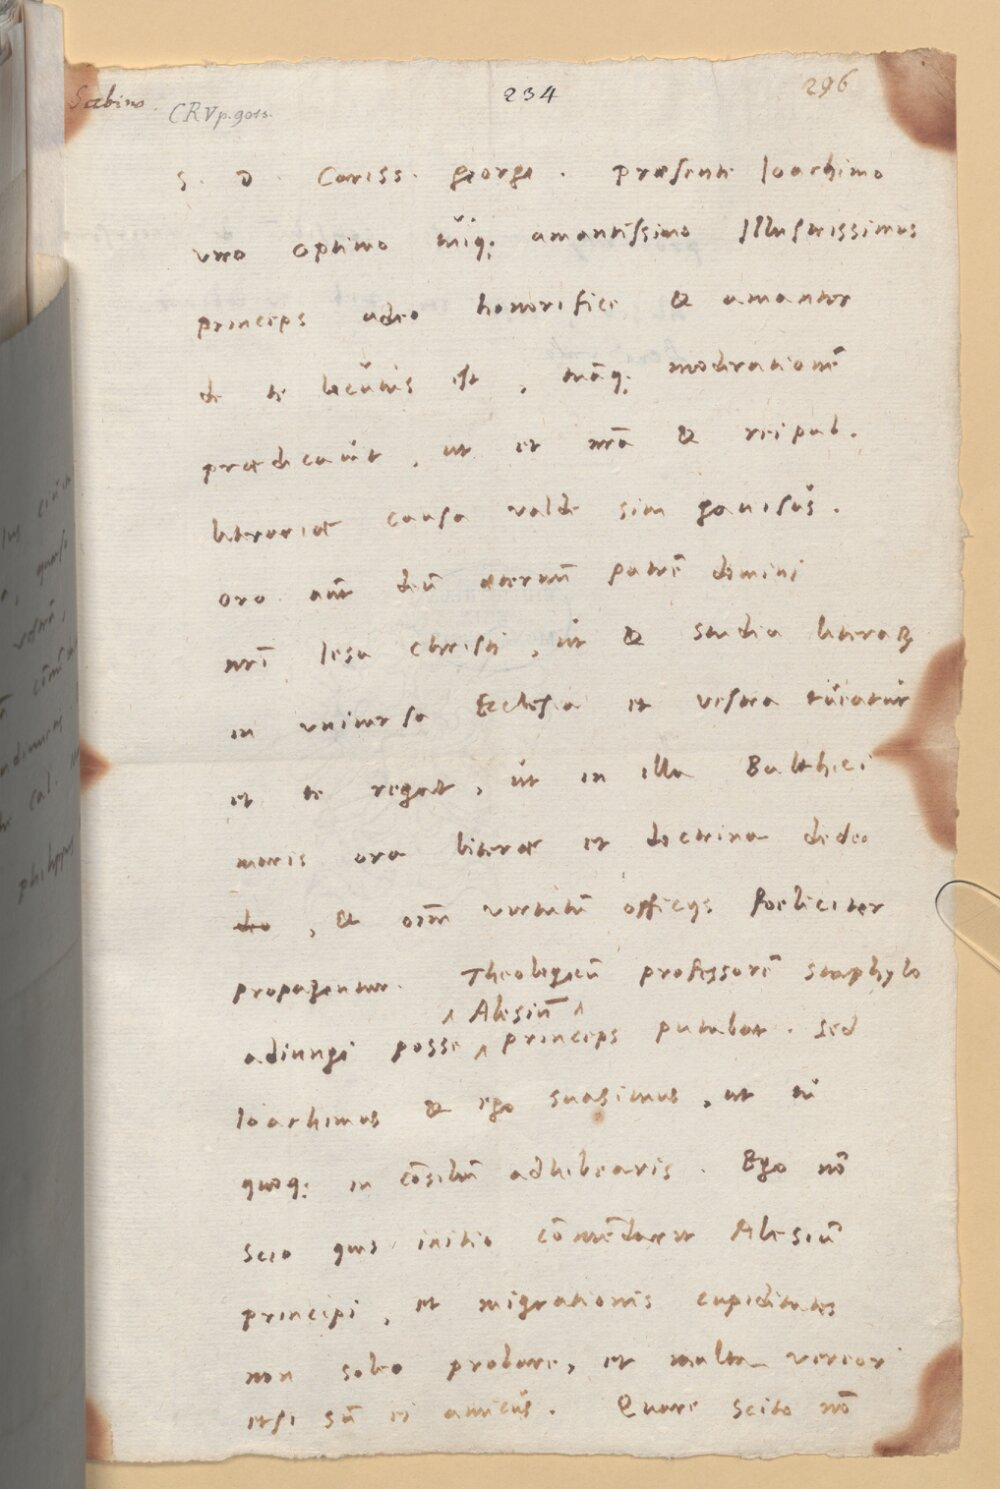 Sabino.
CR V p. 901 s.
234
296
S. D. Cariss. georgi. præsenti Ioachimo
viro optimo tuiq; amantissimo Illustrissimus
princeps adeo honorifice & amanter
de te locutus est, tuāq; moderationē
prædicauit, ut et mea & reipub.
literariæ causa valde sim gauisus.
oro aūt deū æternū patrē domini
nrī Iesu Christi, ut & studia literaꝝ
in vniuersa Ecclesia et vestra tueatur
et te regat, ut in illa Balthici
maris ora literæ et doctrina de deo
deo, & oīm virtutū officijs foeliciter
propagentur. Theologicū professorē Staphylo
adiungi posse ^ Alesiū ^ princeps putabat. Sed
Ioachimus & ego suasimus, ut tu
quoq; in cōsiliū adhibearis. Ego nō
scio quis initio cōmēdarit Alesiū
principi, et migrationis cupiditates
non soleo probare, et multa vereor
etsi sū ei amicus. Quare scito nō
lus
quæso
vestrā,
Cal.
philippus